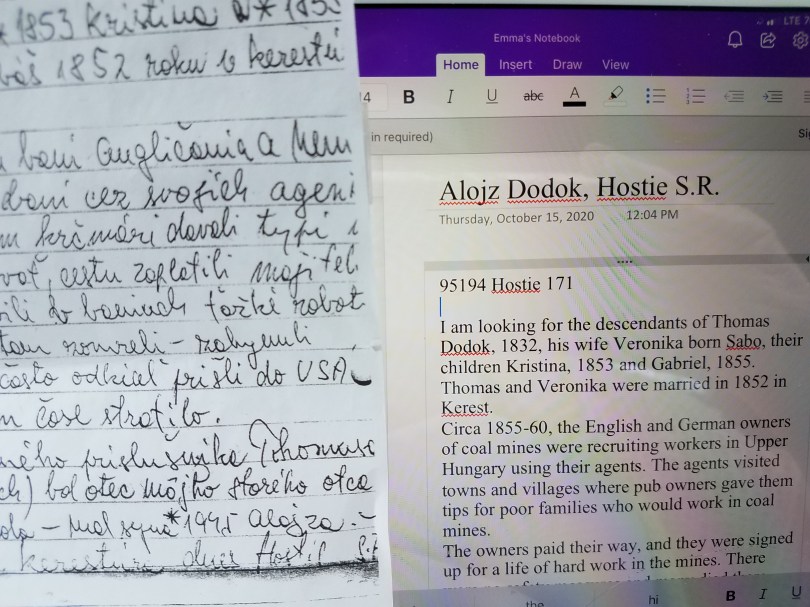 * 1853 Kristina a * 185
1852 roku v Kerestú
bani Angličania a Nem
cez svojich agent
krčmári davali typi
cestu zaplatili majitel
do baniach ťažké robot
tam zomreli - zahynuli
často odkial prišli do USA
čase stratilo.
prislušnika Thomasa
bol otec môjho starého otca
mal syna * 1945 Alojza. -
dnes Hostie S.R
LTE
Emma's Notebook
Home Insert Draw View
14 B I U abc A
in required)
Alojz Dodok, Hostie S.R.
Thursday, October 15, 2020 12:04 PM
95194 Hostie 171
I am looking for the descendants of Thomas
Dodok, 1832, his wife Veronika born Sabo, their
children Kristina, 1853 and Gabriel, 1855.
Thomas and Veronika were married in 1852 in
Kerest.
Circa 1855-60, the English and German owners
of coal mines were recruiting workers in Upper
Hungary using their agents. The agents visited
towns and villages where pub owners gave them
tips for poor families who would work in coal
mines.
The owners paid their way, and they were signed
up for a life of hard work in the mines. There
the hi B I U